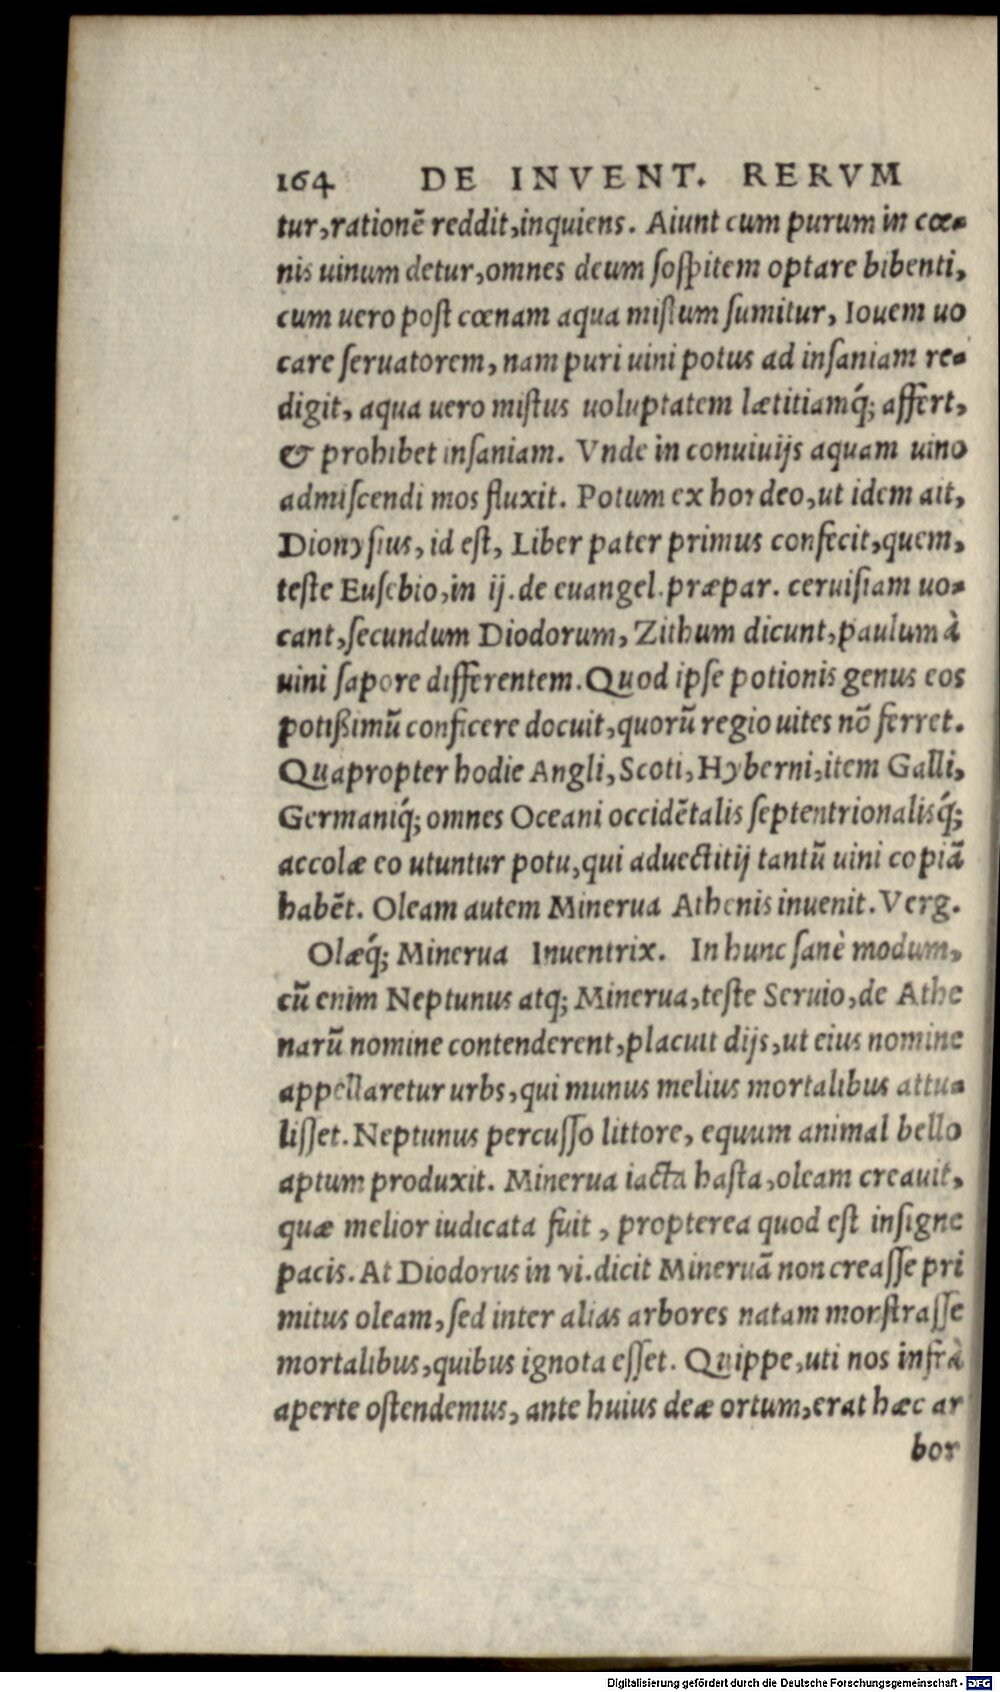 164 DE INVENT. RERVM
tur, rationē reddit, inquiens. Aiunt cum purum in cœ-
nis uinum detur, omnes deum ſoſpitem optare bibenti,
cum uero poſt cœnam aqua miſtum ſumitur, Iouem uo
care ſeruatorem, nam puri uini potus ad inſaniam re-
digit, aqua uero miſtus uoluptatem lætitiamq́; affert,
& prohibet inſaniam. Vnde in conuiuijs aquam uino
admiſcendi mos fluxit. Potum ex hordeo, ut idem ait,
Dionyſius, id eſt, Liber pater primus confecit, quem,
teſte Euſebio, in ij. de euangel. præpar. ceruiſiam uo-
cant, ſecundum Diodorum, Zithum dicunt, paulum à
uini ſapore differentem. Quod ipſe potionis genus eos
potißimū conficere docuit, quorū regio uites nō ferret.
Quapropter hodie Angli, Scoti, Hyberni, item Galli,
Germaniq́; omnes Oceani occidētalis ſeptentrionalisq́;
accolæ eo utuntur potu, qui aduectitij tantū uini copiā
habēt. Oleam autem Minerua Athenis inuenit. Verg.
Olæq́; Minerua Inuentrix. In hunc ſanè modum,
cū enim Neptunus atq; Minerua, teſte Seruio, de Athe
narū nomine contenderent, placuit dijs, ut eius nomine
appellaretur urbs, qui munus melius mortalibus attu-
liſſet. Neptunus percuſſo littore, equum animal bello
aptum produxit. Minerua iacta haſta, oleam creauit,
quæ melior iudicata fuit, propterea quod eſt inſigne
pacis. At Diodorus in vi. dicit Mineruā non creaſſe pri
mitus oleam, ſed inter alias arbores natam monſtraſſe
mortalibus, quibus ignota eſſet. Quippe, uti nos infrà
aperte oſtendemus, ante huius deæ ortum, erat hæc ar
bor
Digitalisierung gefördert durch die Deutsche Forschungsgemeinschaft - DFG